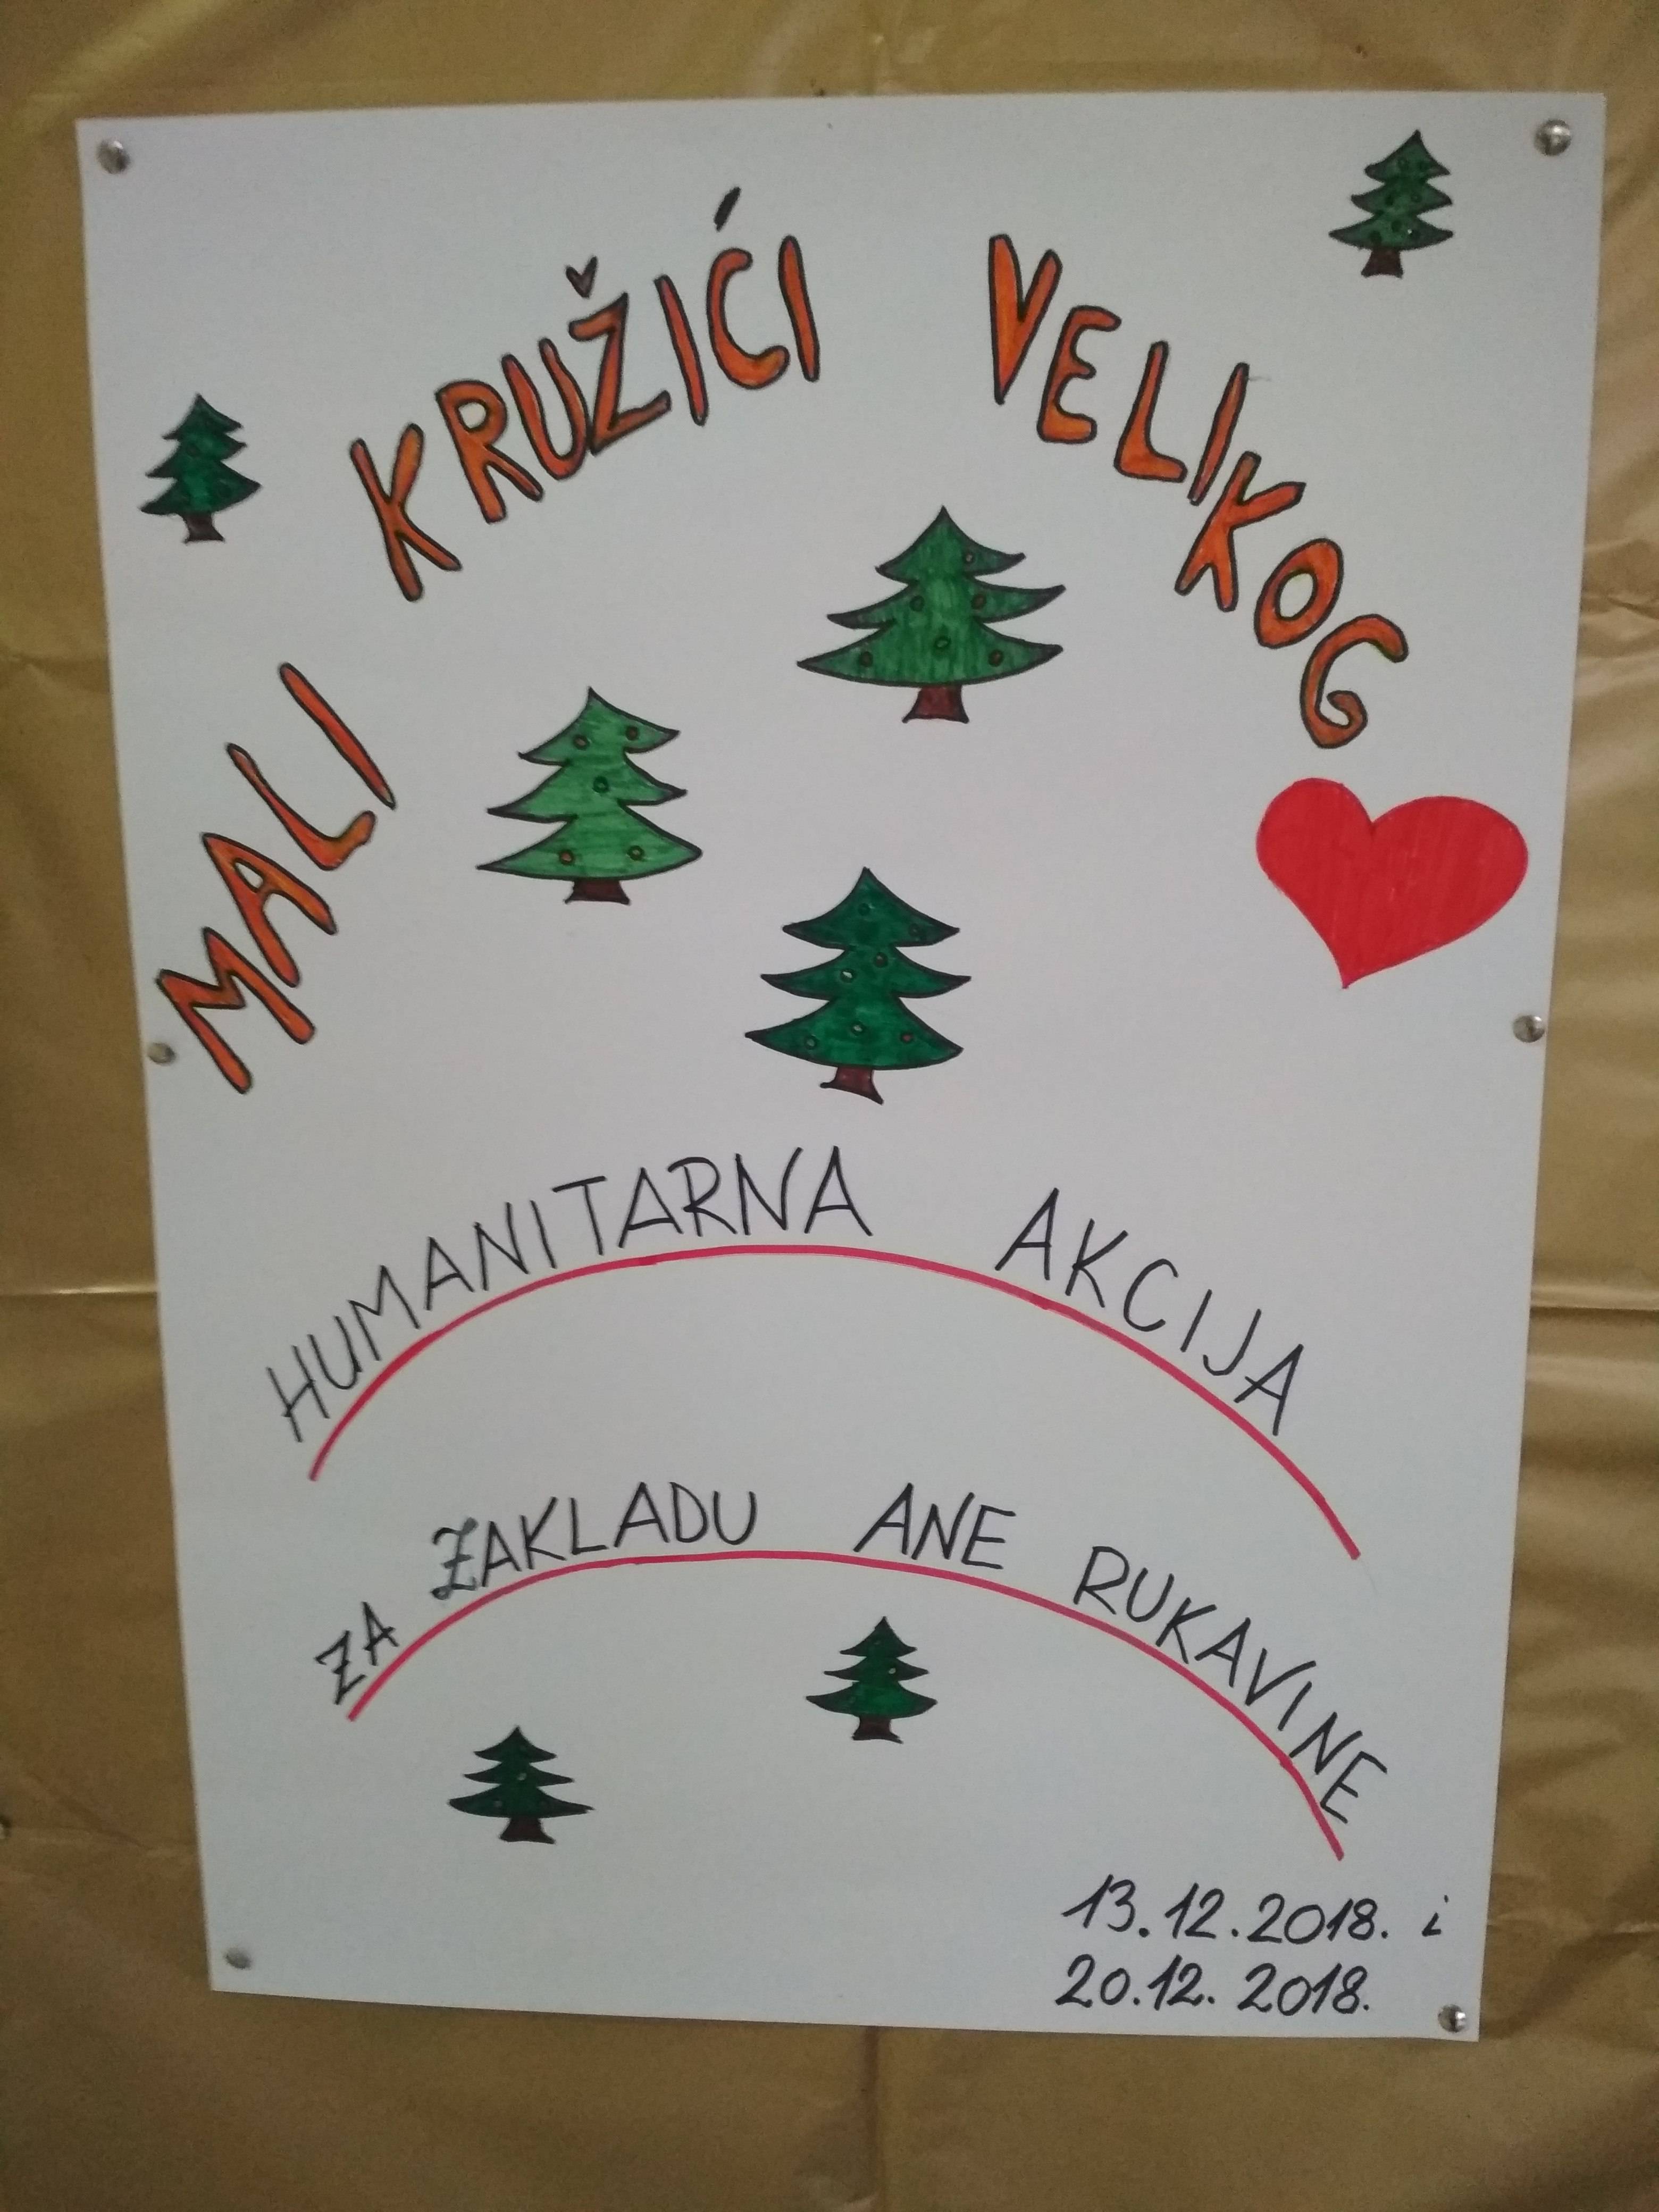 MALI KRUŽIĆI VELIKOG
HUMANITARNA AKCIJA
ZA ZAKLADU ANE RUKAVINE
13.12.2018. i
20.12.2018.